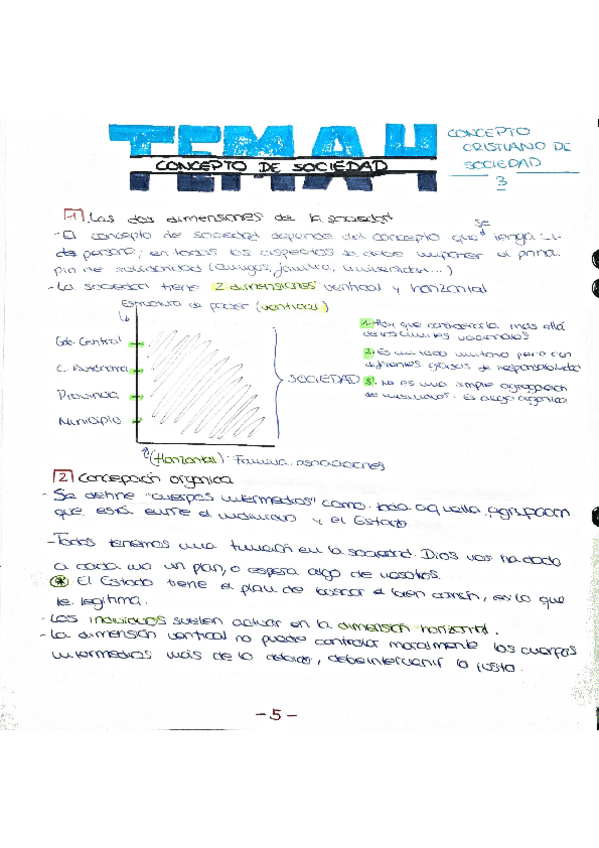 TEMA 4
CONCEPTO DE SOCIEDAD
CONCEPTO
CRISTIANO DE
SOCIEDAD
3
1 Las dos dimensiones de la sociedad
- El concepto de sociedad depende del concepto que se tenga
de persona; en todos los aspectos se debe imponer el princi-
pio de solidaridad (amigos, familia, universidad...)
- La sociedad tiene 2 dimensiones vertical y horizontal
Estructura de poder (vertical)
Gob. Central
C. Autónoma
Provincia
Municipio
SOCIEDAD
1. Hay que considerarla más allá
de los límites nacionales
2. Es un todo unitario pero con
diferentes grados de responsabilidad
3. No es una simple agregación
de individuos. Es algo orgánico
(Horizontal): Familia, asociaciones
2 Concepción orgánica
- Se define "cuerpos intermedios" como toda aquella agrupación
que está entre el individuo y el Estado
- Todos tenemos una función en la sociedad. Dios nos ha dado
a cada uno un plan, o espera algo de nosotros.
* El Estado tiene el plan de buscar el bien común, es lo que
le legitima.
- Los individuos suelen actuar en la dimensión horizontal.
- La dimensión vertical no puede controlar moralmente los cuerpos
intermedios más de lo debido, debe intervenir lo justo.
- 5 -